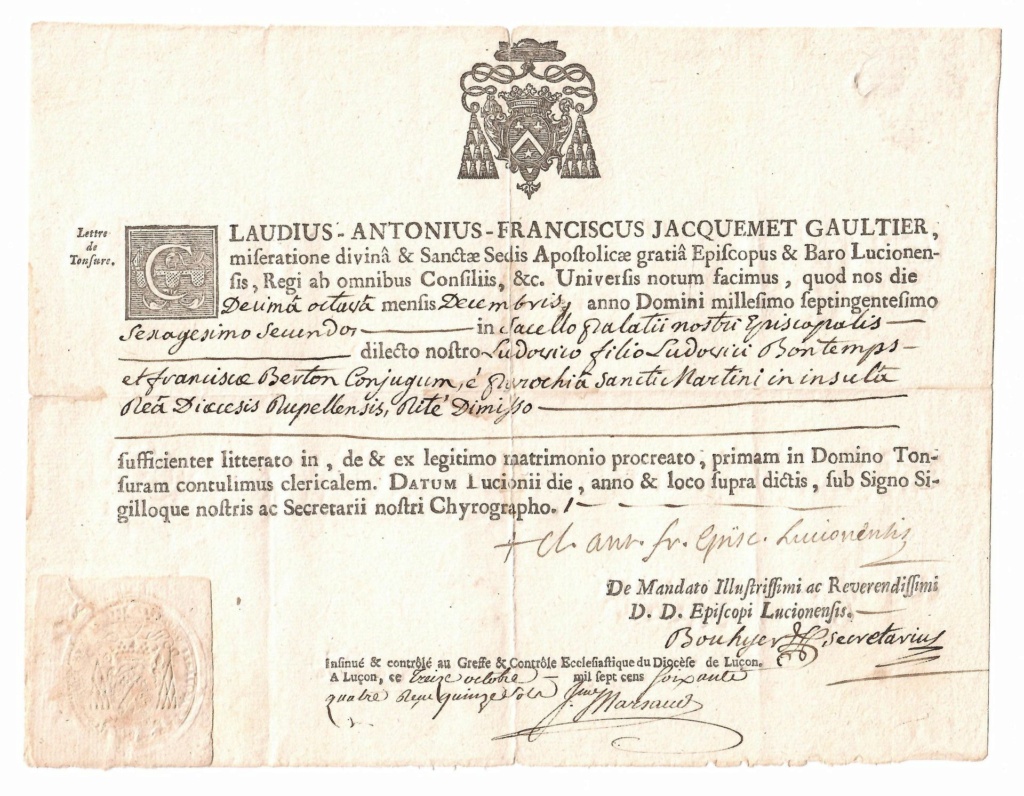 Lettre
de
Tonsure.
CLAUDIUS-ANTONIUS-FRANCISCUS JACQUEMET GAULTIER,
miſeratione divinâ & Sanctæ Sedis Apoſtolicæ gratiâ Epiſcopus & Baro Lucionen-
ſis, Regi ab omnibus Conſiliis, &c. Univerſis notum facimus, quod nos die
Decimâ octavâ menſis Decembris, anno Domini milleſimo ſeptingenteſimo
Sexagesimo Secundo in Sacello Palatii nostri Episcopalis
dilecto noſtro Ludovico filio Ludovici Bontemps
et franciscæ Berton Conjugum, é Parochiâ Sancti Martini in insulâ
Reâ Diœcesis Rupellensis, Rité Dimisso
ſufficienter litterato in, de & ex legitimo matrimonio procreato, primam in Domino Ton-
ſuram contulimus clericalem. DATUM Lucionii die, anno & loco ſupra dictis, ſub Signo Si-
gilloque noſtris ac Secretarii noſtri Chyrographo.
+ Cl. ant. fr. Episc. Lucionensis
De Mandato Illuſtriſſimi ac Reverendiſſimi
D. D. Epiſcopi Lucionenſis.
Bouhyer secretarius
Inſinué & contrôlé au Greffe & Contrôle Eccleſiaſtique du Diocèſe de Luçon.
A Luçon, ce treize octobre mil ſept cens soixante
quatre Reçu quinze sols
Marsaud